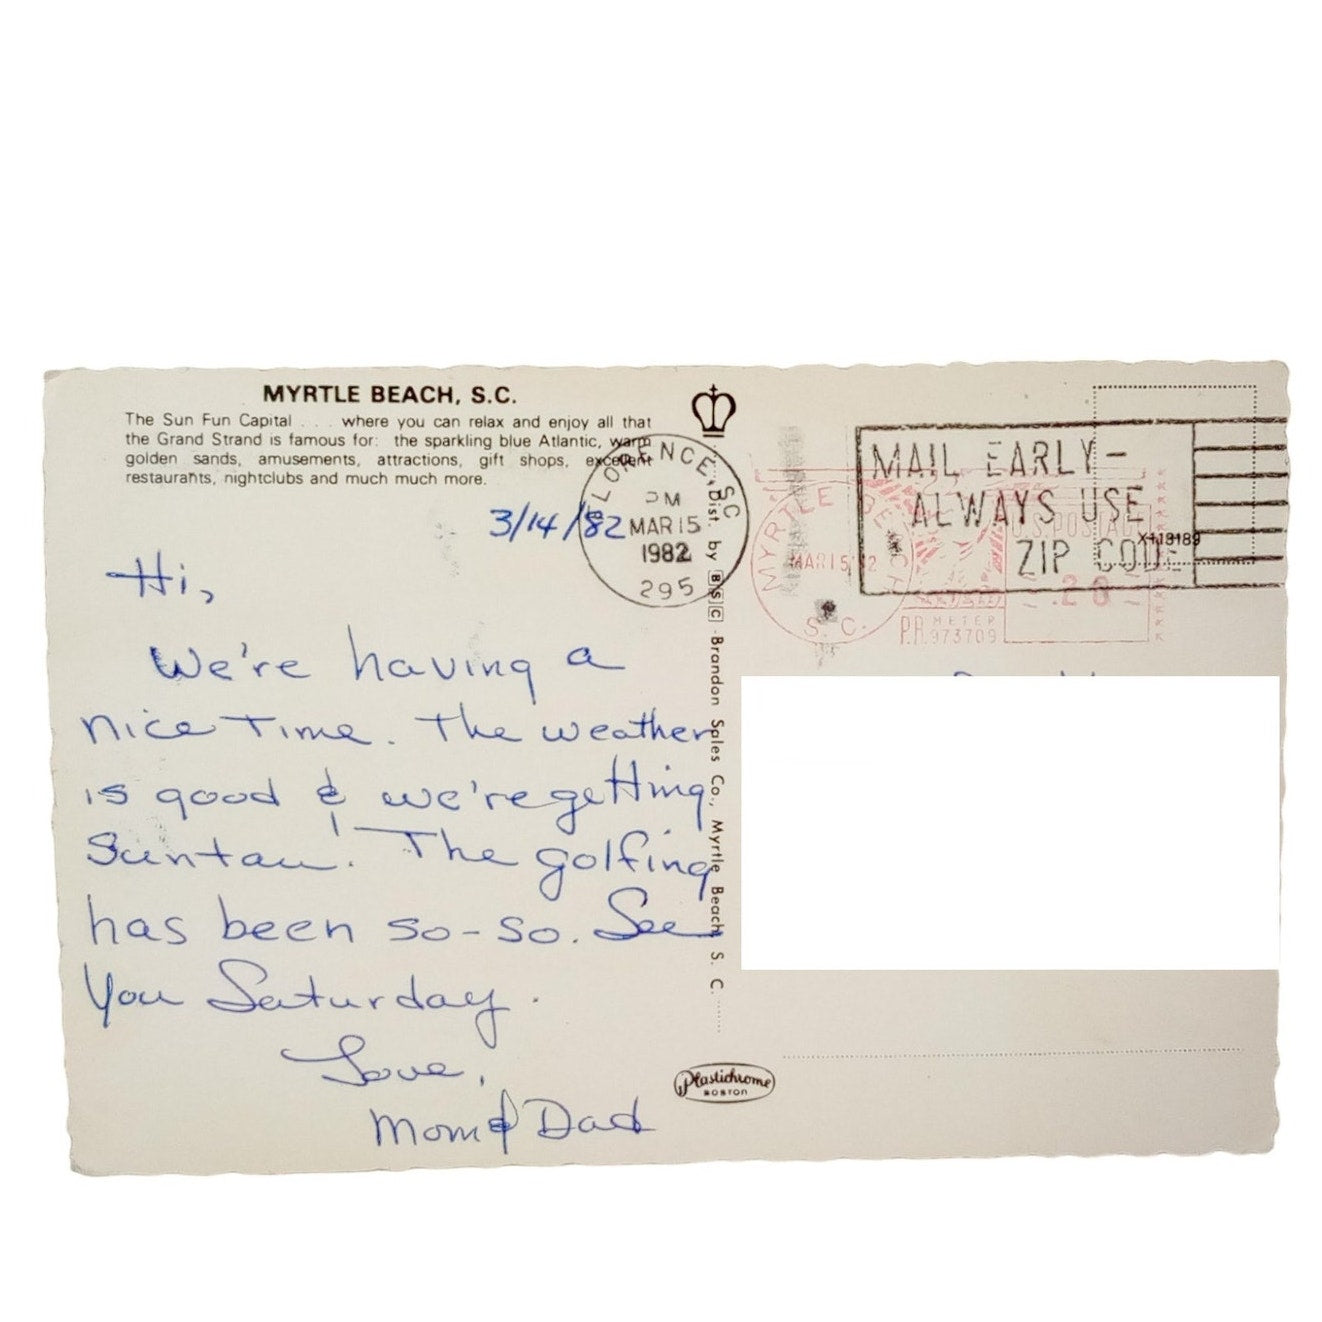 MYRTLE BEACH, S.C.
The Sun Fun Capital . . . where you can relax and enjoy all that
the Grand Strand is famous for: the sparkling blue Atlantic, warm
golden sands, amusements, attractions, gift shops, excellent
restaurants, nightclubs and much much more.
3/14/82
Hi,
We're having a
nice Time. The weather
is good & we're getting
Suntan! The golfing
has been so-so. See
You Saturday.
Love,
Mom & Dad
FLORENCE, SC
PM
MAR 15
1982
295
Dist. by BSC Brandon Sales Co., Myrtle Beach, S. C.
MYRTLE BEACH
MAR 15 '82
S. C.
U.S. POSTAGE
P.B. METER
973709
MAIL EARLY-
ALWAYS USE
ZIP CODE
X113189
Plastichrome
BOSTON